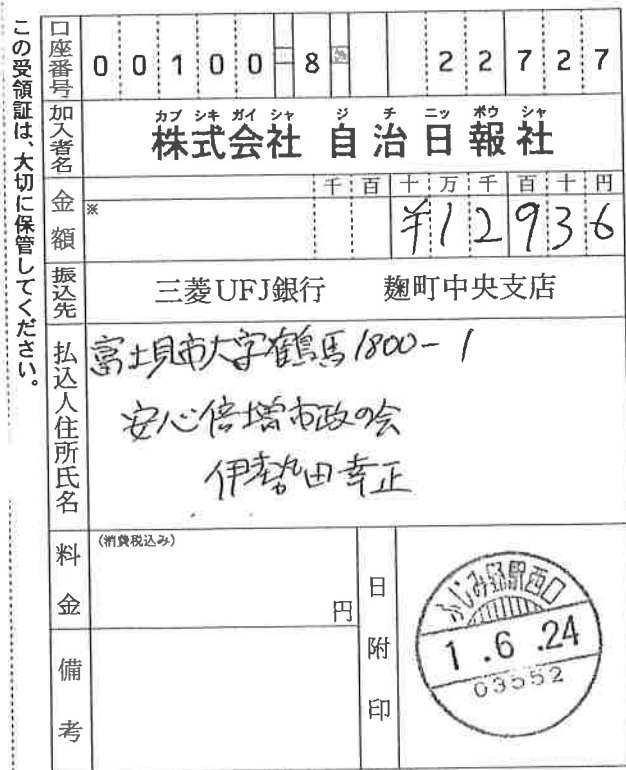 この受領証は、大切に保管してください。
口座番号 00100-8 22727
加入者名
カブ シキ ガイ シャ ジ チ ニッ ポウ シャ
株式会社 自治日報社
金額
千 百 十 万 千 百 十 円
※ ¥12936
振込先 三菱UFJ銀行 麹町中央支店
払込人住所氏名
富士見市大字鶴馬1800-1
安心倍増市政の会
伊勢田幸正
料金
(消費税込み)
円
備考
日附印
ふじみ野駅西口
1.6.24
03552